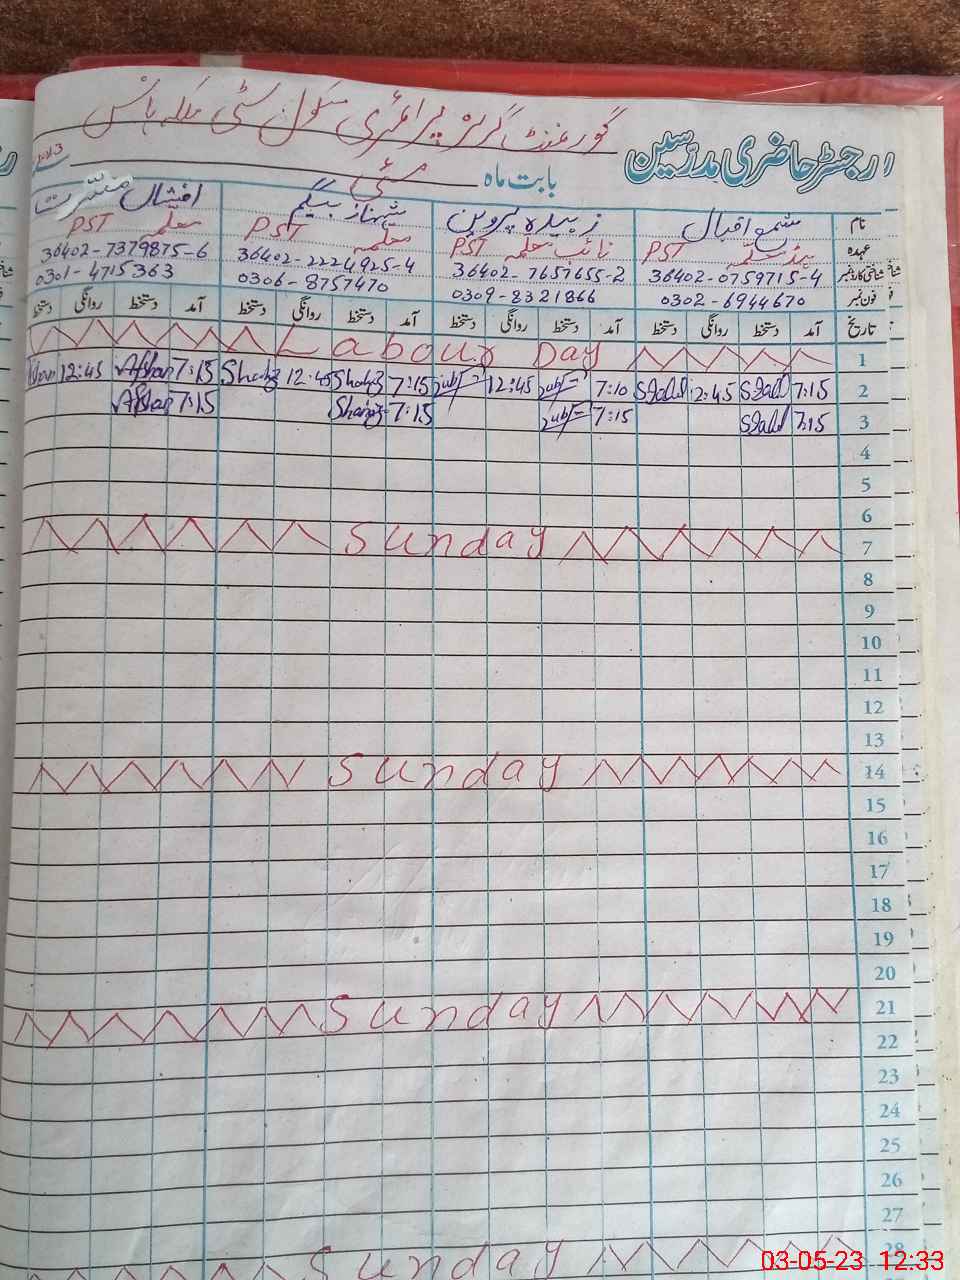 گورنمنٹ گرلز پرائمری سکول سٹی ملکہ ہانس
رجسٹر حاضری مدرسین
بابت ماہ مئی
نام شمع اقبال زبیدہ پروین شہناز بیگم افشاں
عہدہ ہیڈ معلمہ PST نائب معلمہ PST معلمہ PST معلمہ PST
شناختی کارڈ نمبر 36402-0759715-4 36402-7657655-2 36402-2224925-4 36402-7379875-6
فون نمبر 0302-6944670 0309-8321866 0306-8757470 0301-4715363
تاریخ آمد دستخط روانگی دستخط آمد دستخط روانگی دستخط آمد دستخط روانگی دستخط آمد دستخط روانگی دستخط
Labour Day 1
12:45 Afshan 7:15 Shahnaz 12:45 Shahnaz 7:15 12:45 7:10 12:45 7:15 2
Afshan 7:15 Shahnaz 7:15 7:15 7:15 3
4
5
6
Sunday 7
8
9
10
11
12
13
Sunday 14
15
16
17
18
19
20
Sunday 21
22
23
24
25
26
27
Sunday 28
03-05-23 12:33